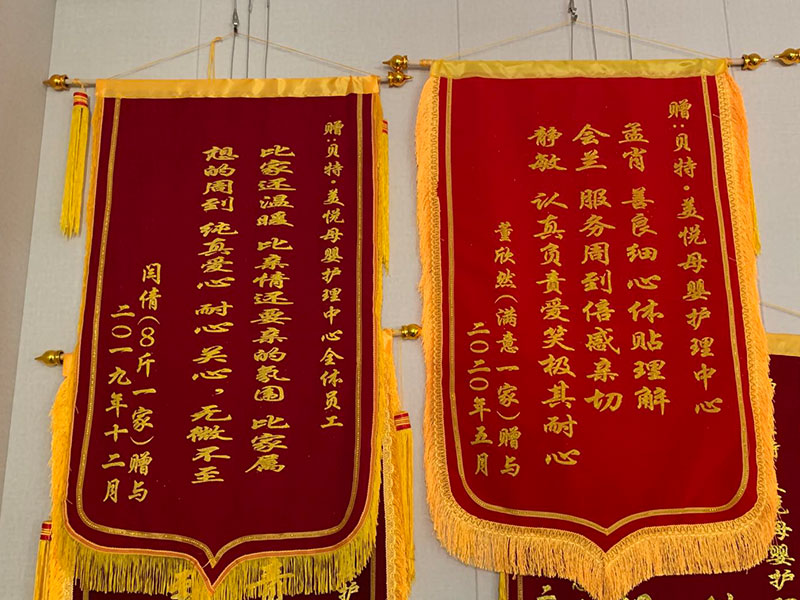 赠:贝特·美悦母婴护理中心全体员工
比家还温暖 比亲情还要亲的氛围 比家属
想的周到 纯真爱心 耐心 关心，无微不至
闫倩(8斤一家)赠与
二〇一九年十二月
赠:贝特·美悦母婴护理中心
孟肖 善良细心体贴理解
会兰 服务周到倍感亲切
静敏 认真负责爱笑极其耐心
董欣然(满意一家)赠与
二〇二〇年五月